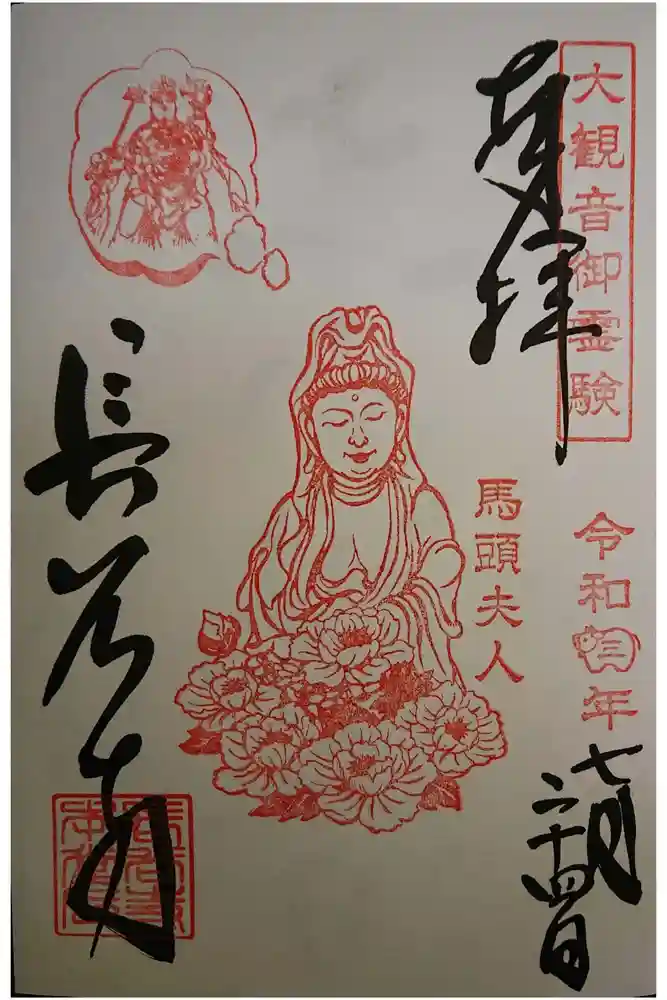 大観音御霊験
奉拝
令和三年
七月
二十四日
馬頭夫人
長谷寺